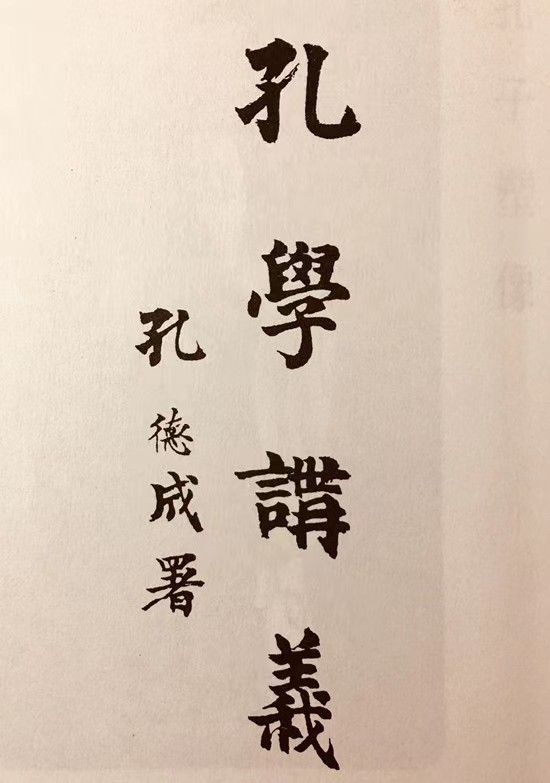 孔學講義
孔德成署